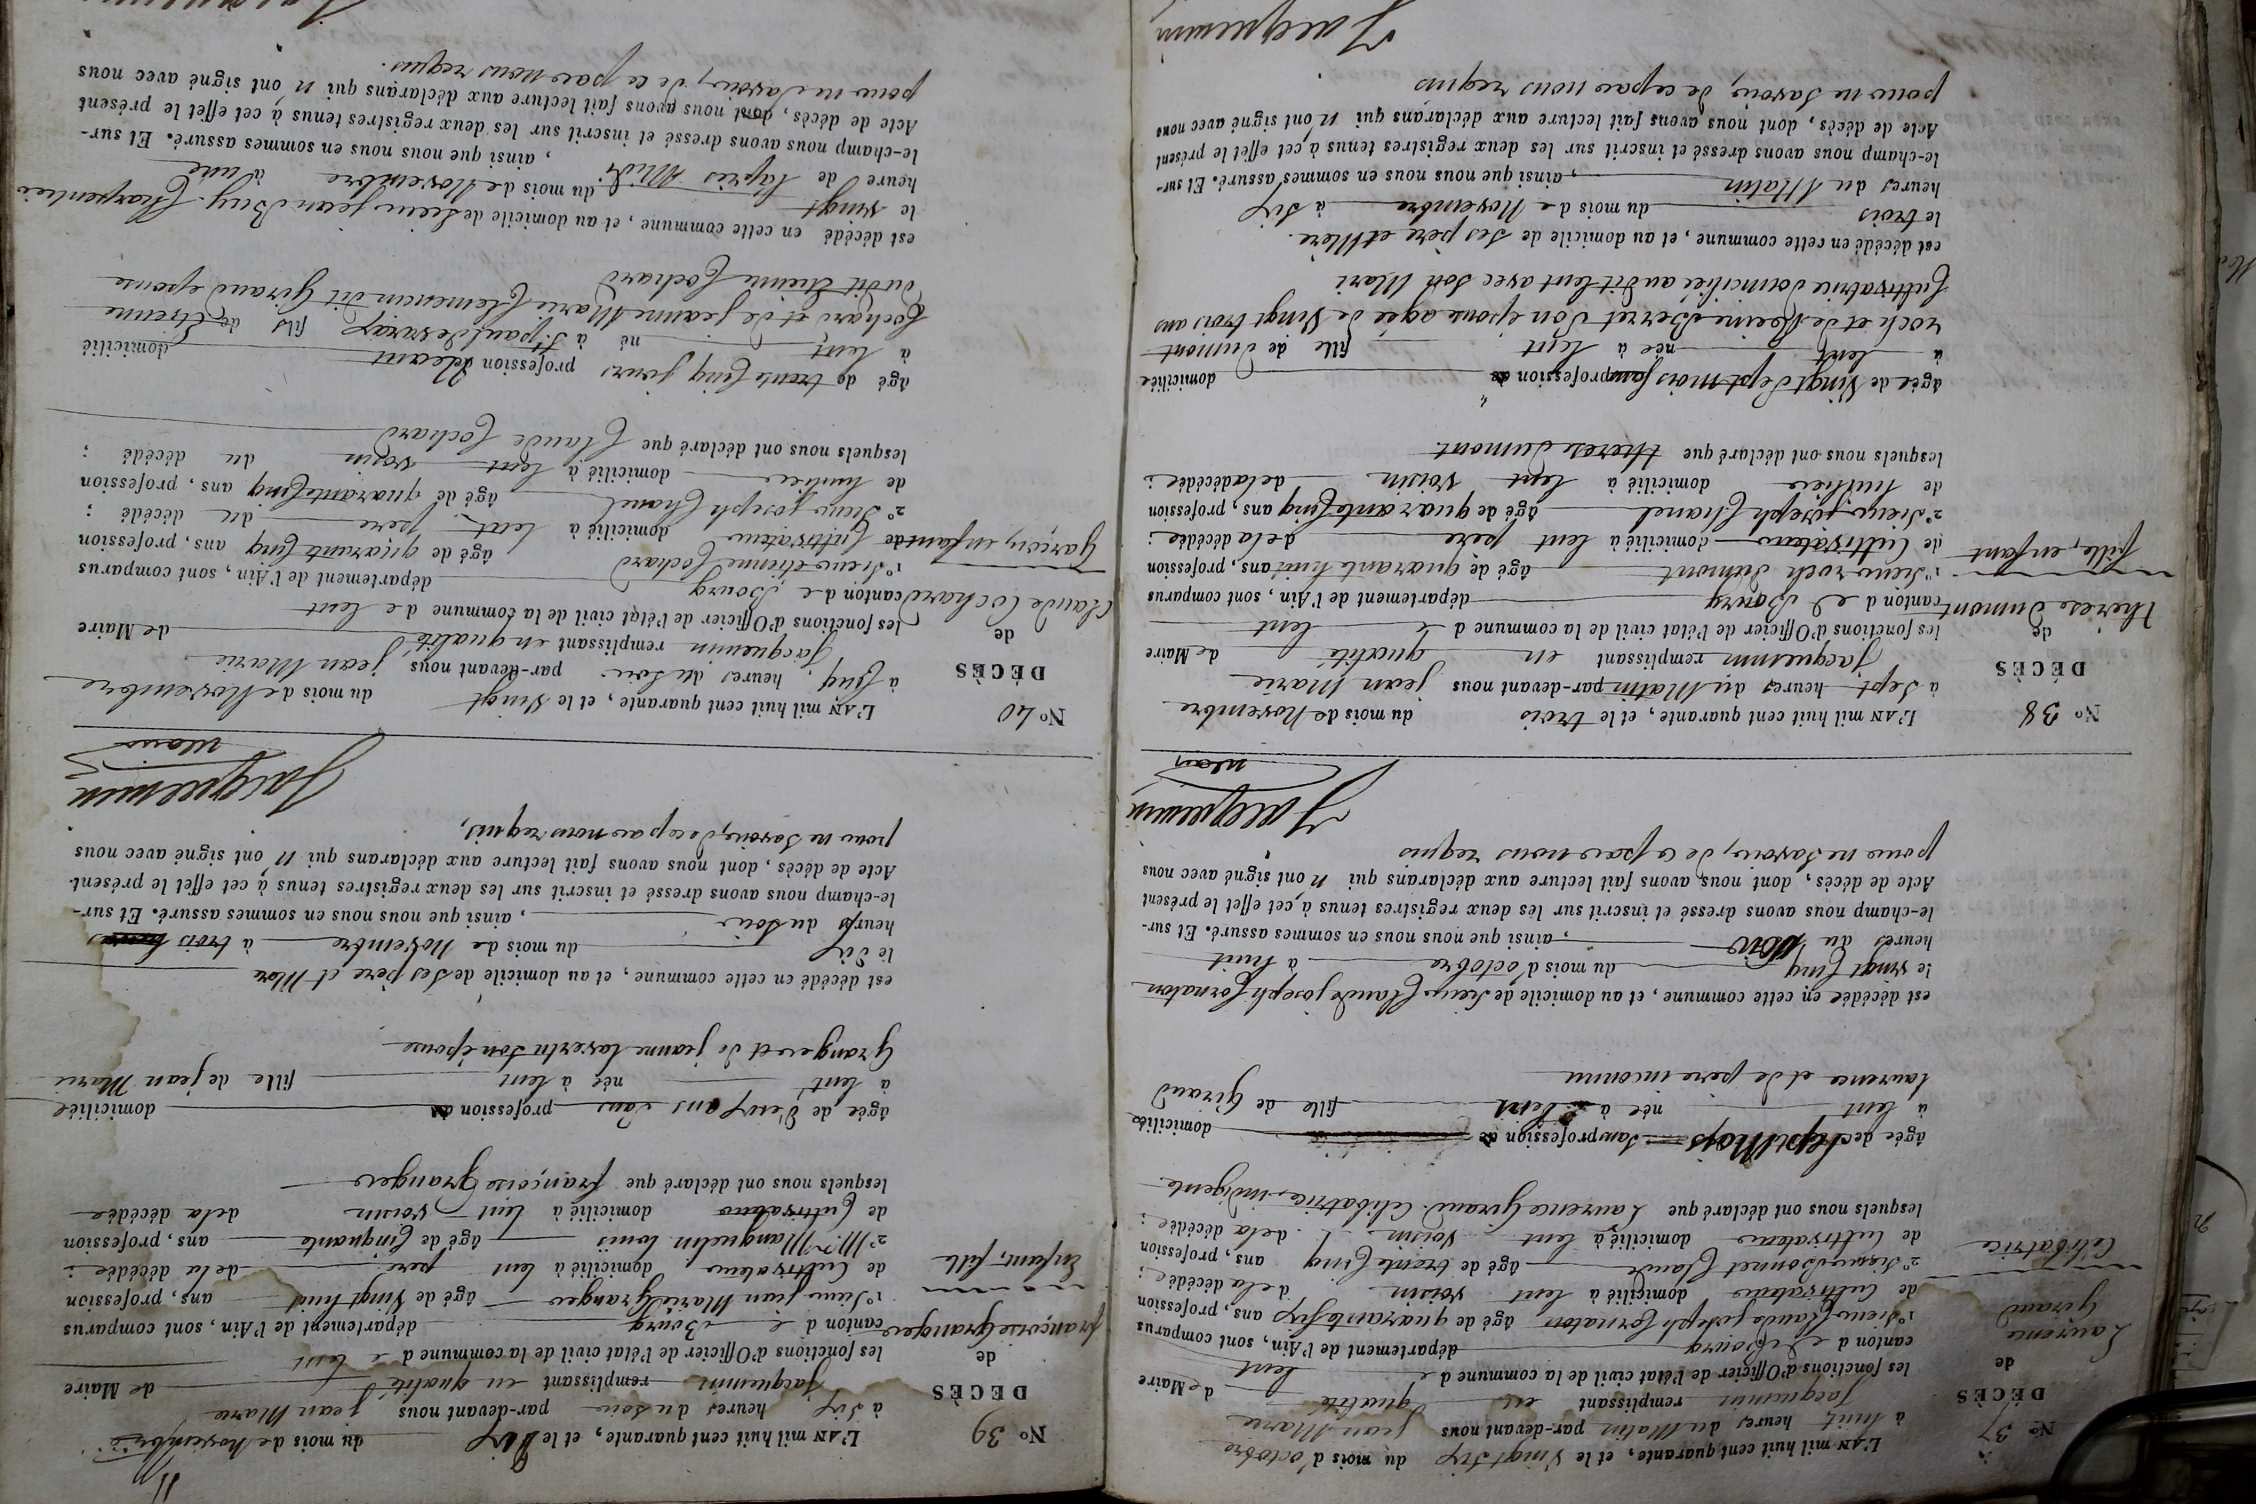 N° 37
DÉCÈS
de
Laurence
Giraud
Célibatrice
L'AN mil huit cent quarante, et le Vingt Six du mois d'octobre
à huit heures du Matin par-devant nous jean Marie
Jacquemin remplissant en qualité de Maire
les fonctions d'Officier de l'état civil de la commune de lent
canton de Bourg département de l'Ain, sont comparus
1° Sieur Claude joseph Cornaton âgé de quarante Six ans, profession
de Cultivateur domicilié à lent voisin de la décédée ;
2° Sieur Bonnet Claude âgé de trente Cinq ans, profession
de Cultivateur domicilié à lent voisin de la décédée ;
lesquels nous ont déclaré que Laurence Giraud Célibatrice, indigente
âgée de Sept Mois Sans profession domiciliée
à lent née à lent fille de Giraud
laurence et de pere inconnu
est décédée en cette commune, et au domicile de Sieur Claude joseph Cornaton
le vingt Cinq du mois d'octobre à huit
heures du Soir, ainsi que nous nous en sommes assuré. Et sur-
le-champ nous avons dressé et inscrit sur les deux registres tenus à cet effet le présent
Acte de décès, dont nous avons fait lecture aux déclarans qui n'ont signé avec nous
pour ne Savoir, de ce par nous requis
Jacquemin
maire
N° 38
DÉCÈS
de
therèse Dumont
fille, enfant
L'AN mil huit cent quarante, et le trois du mois de Novembre
à Sept heures du Matin par-devant nous jean Marie
Jacquemin remplissant en qualité de Maire
les fonctions d'Officier de l'état civil de la commune de lent
canton de Bourg département de l'Ain, sont comparus
1° Sieur roch Dumont âgé de quarante huit ans, profession
de Cultivateur domicilié à lent pere de la décédée ;
2° Sieur joseph Chanel âgé de quarante Cinq ans, profession
de huillier domicilié à lent voisin de la décédée ;
lesquels nous ont déclaré que therese Dumont
âgée de Vingt Sept mois Sans profession domiciliée
à lent née à lent fille de Dumont
roch et de Reine Beret Son épouse agée de Vingt trois ans
Cultivatrice domiciliée audit lent avec Son Mari
est décédé en cette commune, et au domicile de Ses père et Mère.
le trois du mois de Novembre à Six
heures du Matin, ainsi que nous nous en sommes assuré. Et sur-
le-champ nous avons dressé et inscrit sur les deux registres tenus à cet effet le présent
Acte de décès, dont nous avons fait lecture aux déclarans qui n'ont signé avec nous
pour ne Savoir, de ce par nous requis
Jacquemin
N° 39
DÉCÈS
de
françoise Granger
Enfant, fille
L'AN mil huit cent quarante, et le Dix du mois de Novembre
à Six heures du soir par-devant nous jean Marie
Jacquemin remplissant en qualité de Maire
les fonctions d'Officier de l'état civil de la commune de lent
canton de Bourg département de l'Ain, sont comparus
1° Sieur jean Marie Granger âgé de Vingt huit ans, profession
de Cultivateur domicilié à lent père de la décédée ;
2° Mr. Manguelin louis âgé de Cinquante ans, profession
de Cultivateur domicilié à lent voisin de la décédée
lesquels nous ont déclaré que françoise Granger
âgée de Deux ans Sans profession domiciliée
à lent née à lent fille de jean Marie
Granger et de jeanne taverlu Son épouse
est décédé en cette commune, et au domicile de Ses père et Mère
le Dix du mois de Novembre à trois
heures du Soir, ainsi que nous nous en sommes assuré. Et sur-
le-champ nous avons dressé et inscrit sur les deux registres tenus à cet effet le présent
Acte de décès, dont nous avons fait lecture aux déclarans qui n'ont signé avec nous
pour ne Savoir, de ce par nous requis,
Jacquemin
maire
N° 40
DÉCÈS
de
Claude Cochard
Garçon, enfant
L'AN mil huit cent quarante, et le Vingt du mois de Novembre
à Cinq heures du Soir par-devant nous jean Marie
Jacquemin remplissant en qualité de Maire
les fonctions d'Officier de l'état civil de la commune de lent
canton de Bourg département de l'Ain, sont comparus
1° Sieur étienne Cochard âgé de quarante Cinq ans, profession
de Cultivateur domicilié à lent pere du décédé ;
2° Sieur joseph Chanel âgé de quarante Cinq ans, profession
de huillier domicilié à lent voisin du décédé ;
lesquels nous ont déclaré que Claude Cochard
âgé de trente Cinq jours profession domicilié
à lent né à St paul de varax fils de Étienne
Cochard et de jeanne Marie Clemencin dit Giraud epouse
dudit Étienne Cochard
est décédé en cette commune, et au domicile de Sieur jean Buy Charpentier
le vingt du mois de Novembre à une
heure de l'après Midi, ainsi que nous nous en sommes assuré. Et sur-
le-champ nous avons dressé et inscrit sur les deux registres tenus à cet effet le présent
Acte de décès, dont nous avons fait lecture aux déclarans qui n'ont signé avec nous
pour ne Savoir, de ce par nous requis.